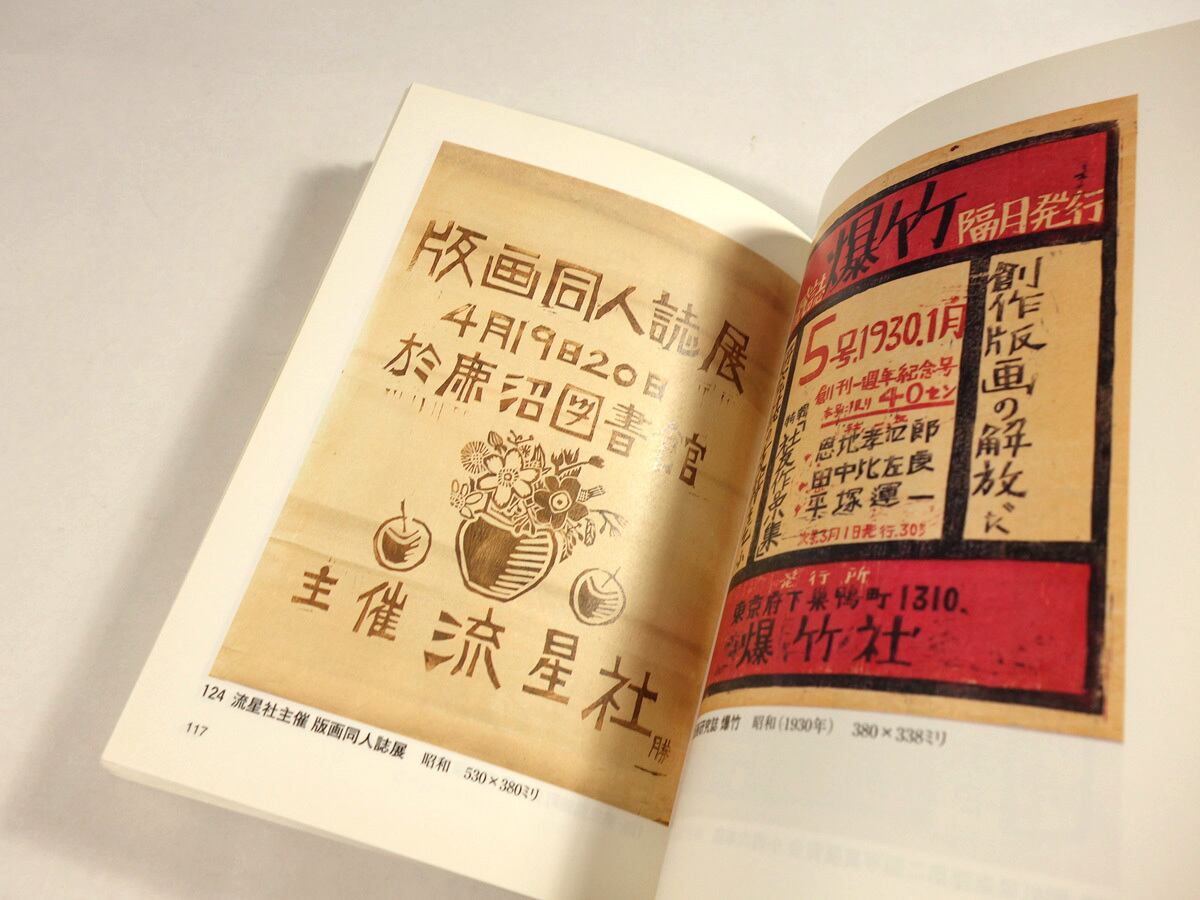 版画同人誌展
4月19日20日
於鹿沼図書館
主催 流星社
勝一
124 流星社主催 版画同人誌展 昭和 530×380ミリ
117
爆竹 隔月発行
創作版画の解放だ
5号.1930.1月
創刊一週年紀念号
本号に限り 40セン
恩地孝四郎
田中比左良
平塚運一
次号3月1日発行.30セン
発行所
東京府下巣鴨町1310、
爆竹社
爆竹 昭和(1930年) 380×338ミリ